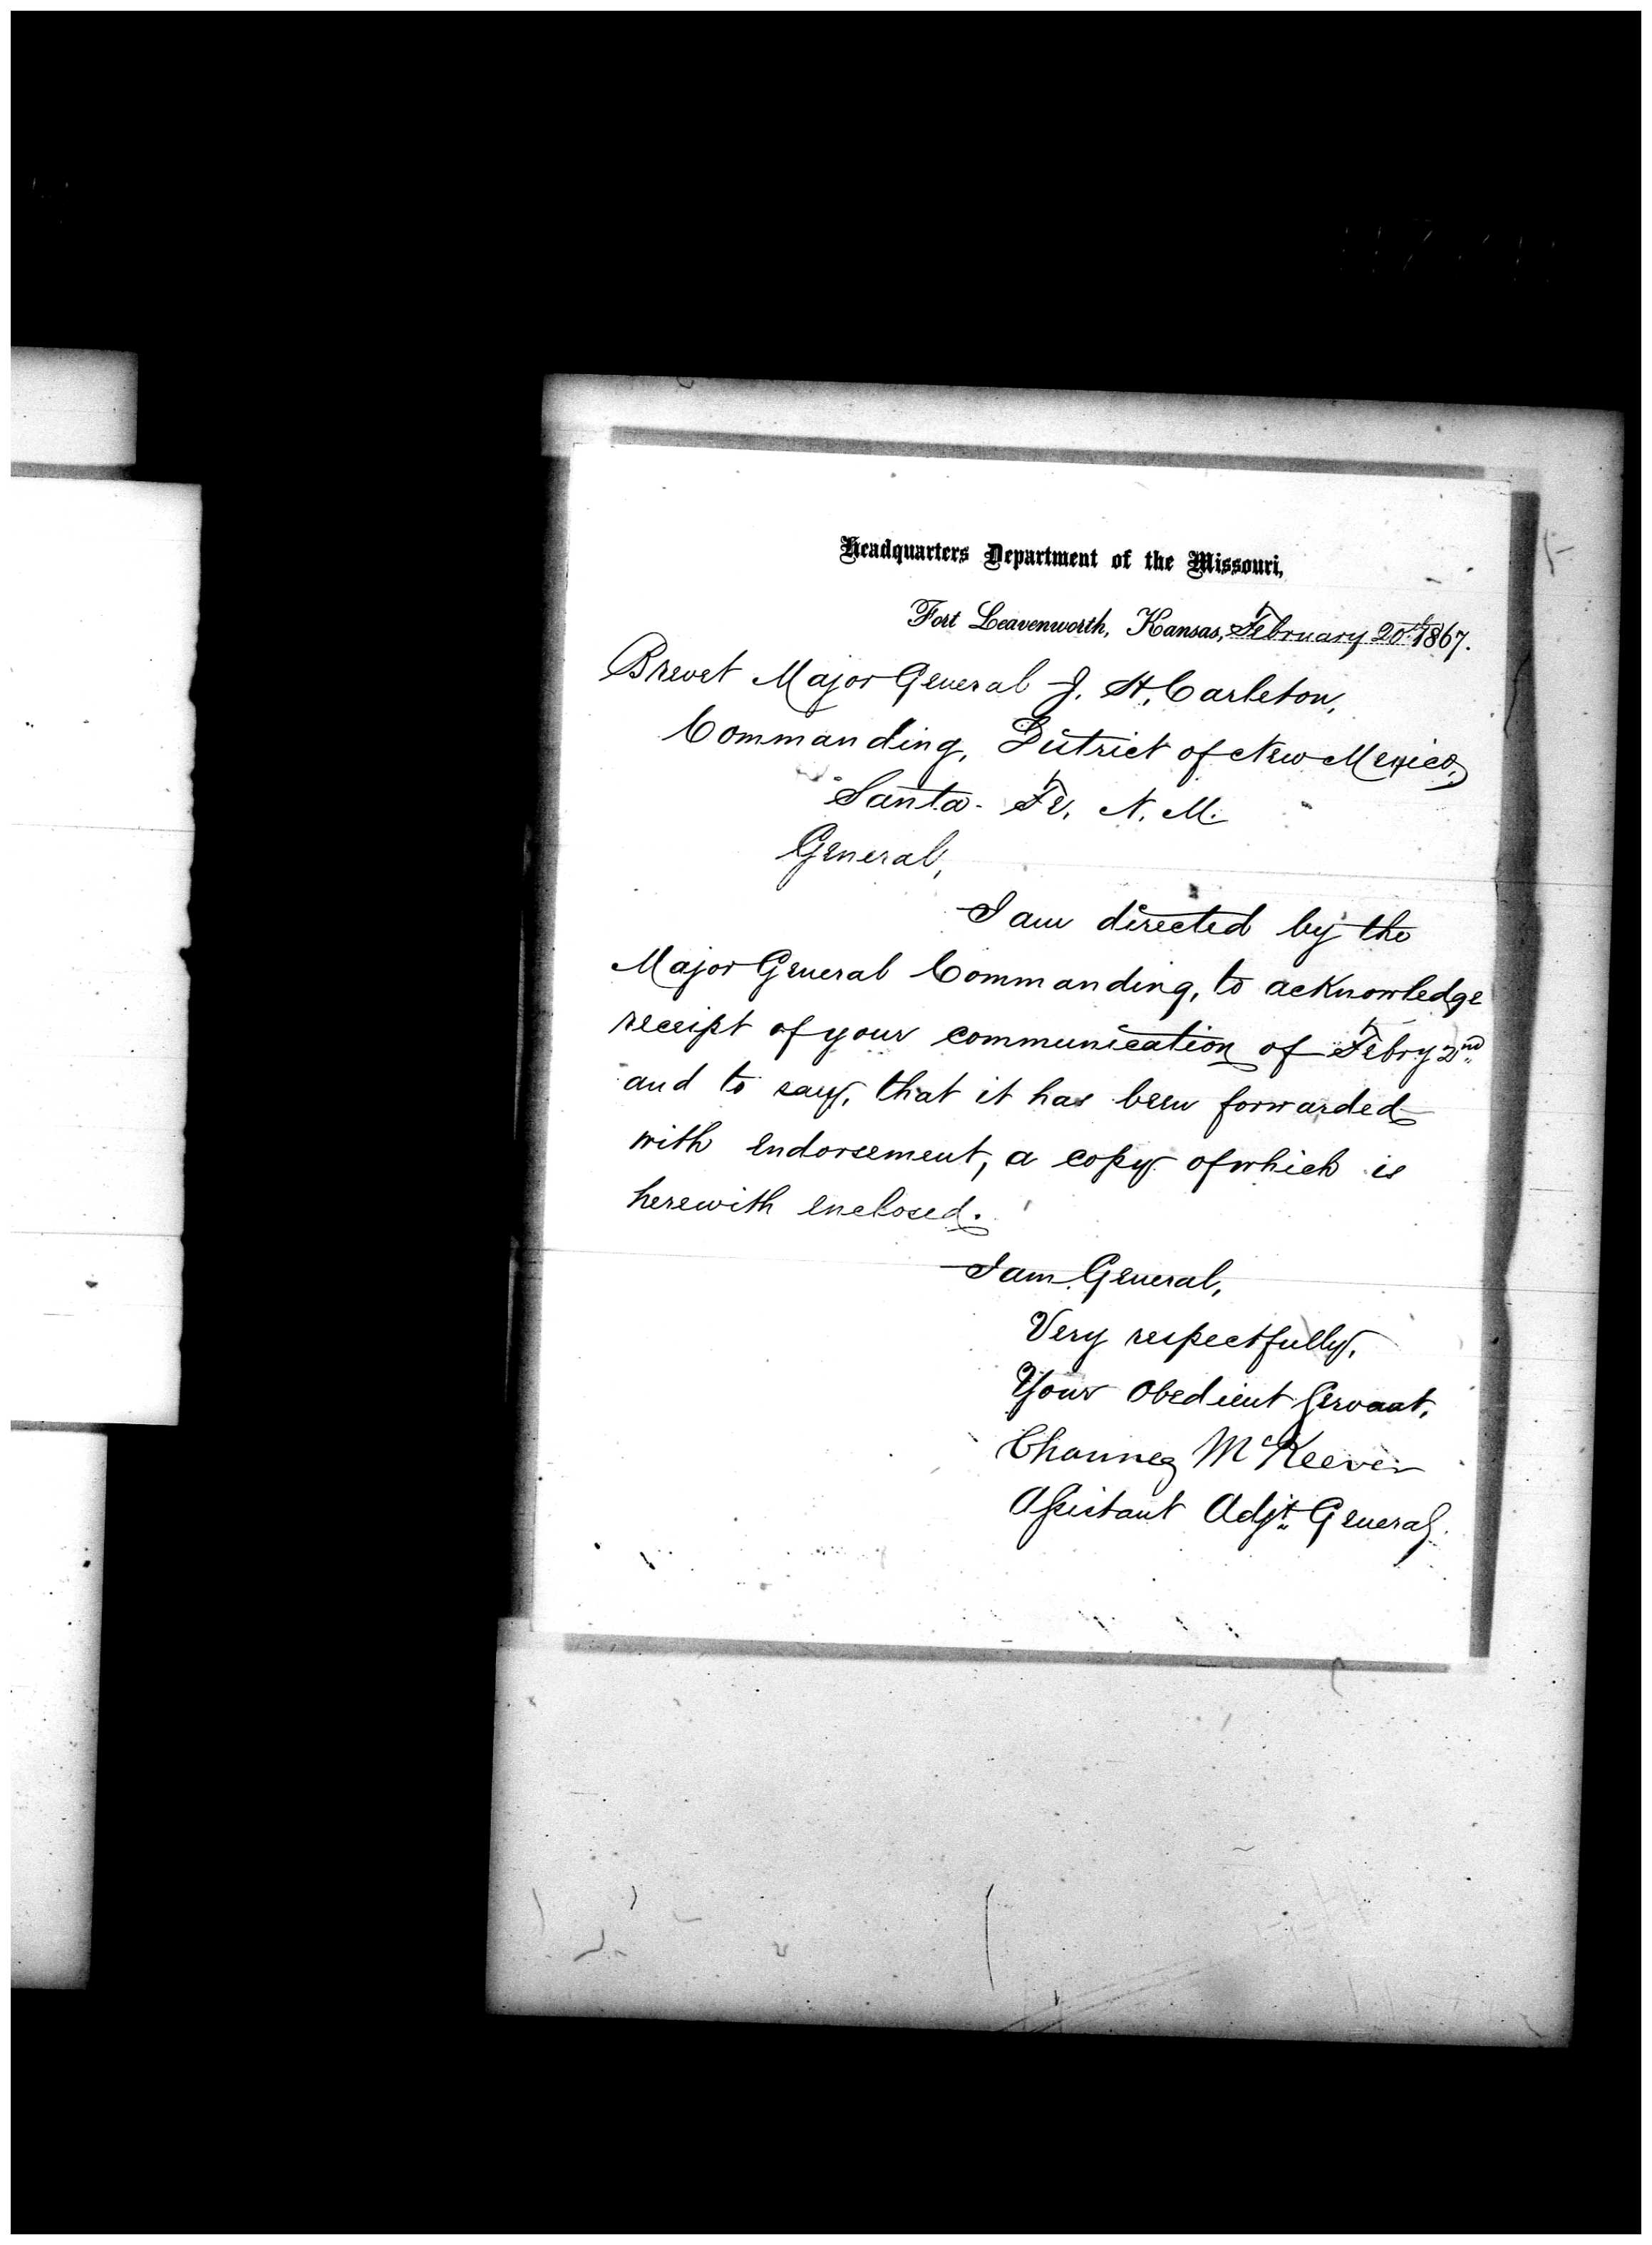 Headquarters Department of the Missouri,
Fort Leavenworth, Kansas, February 20th 1867.
Brevet Major General J. H. Carleton,
Commanding, District of New Mexico,
Santa Fe, N. M.
General,
I am directed by the
Major General Commanding, to acknowledge
receipt of your communication of Febry 2nd
and to say, that it has been forwarded
with endorsement, a copy of which is
herewith enclosed.
I am General,
Very respectfully,
Your Obedient Servant,
Chauncey McKeever
Assistant Adjt. General.